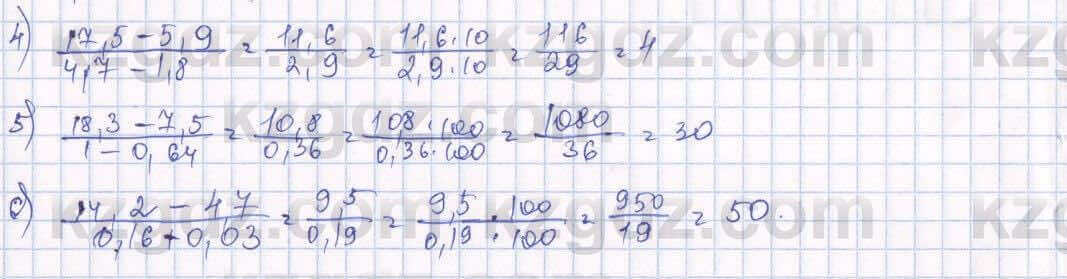 4) (17,5 - 5,9)/(4,7 - 1,8) = 11,6/2,9 = (11,6 · 10)/(2,9 · 10) = 116/29 = 4
5) (18,3 - 7,5)/(1 - 0,64) = 10,8/0,36 = (108 · 100)/(0,36 · 100) = 1080/36 = 30
c) (14,2 - 4,7)/(0,16 + 0,03) = 9,5/0,19 = (9,5 · 100)/(0,19 · 100) = 950/19 = 50.
kzgdz.com